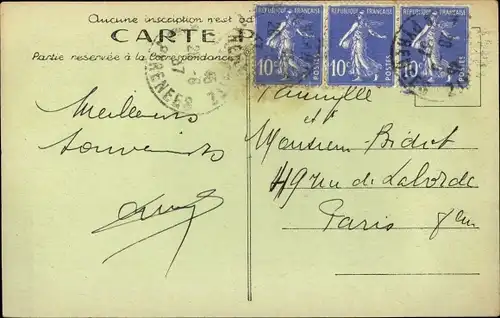 Aucune inscription n'est ad
CARTE P
Partie réservée à la correspondance
REPUBLIQUE FRANÇAISE
10c
POSTES
REPUBLIQUE FRANÇAISE
10c
POSTES
REPUBLIQUE FRANÇAISE
10c
POSTES
PYRENEES
Meilleurs
souvenirs
et
Monsieur Bidot
49 rue de Laborde
Paris 8em